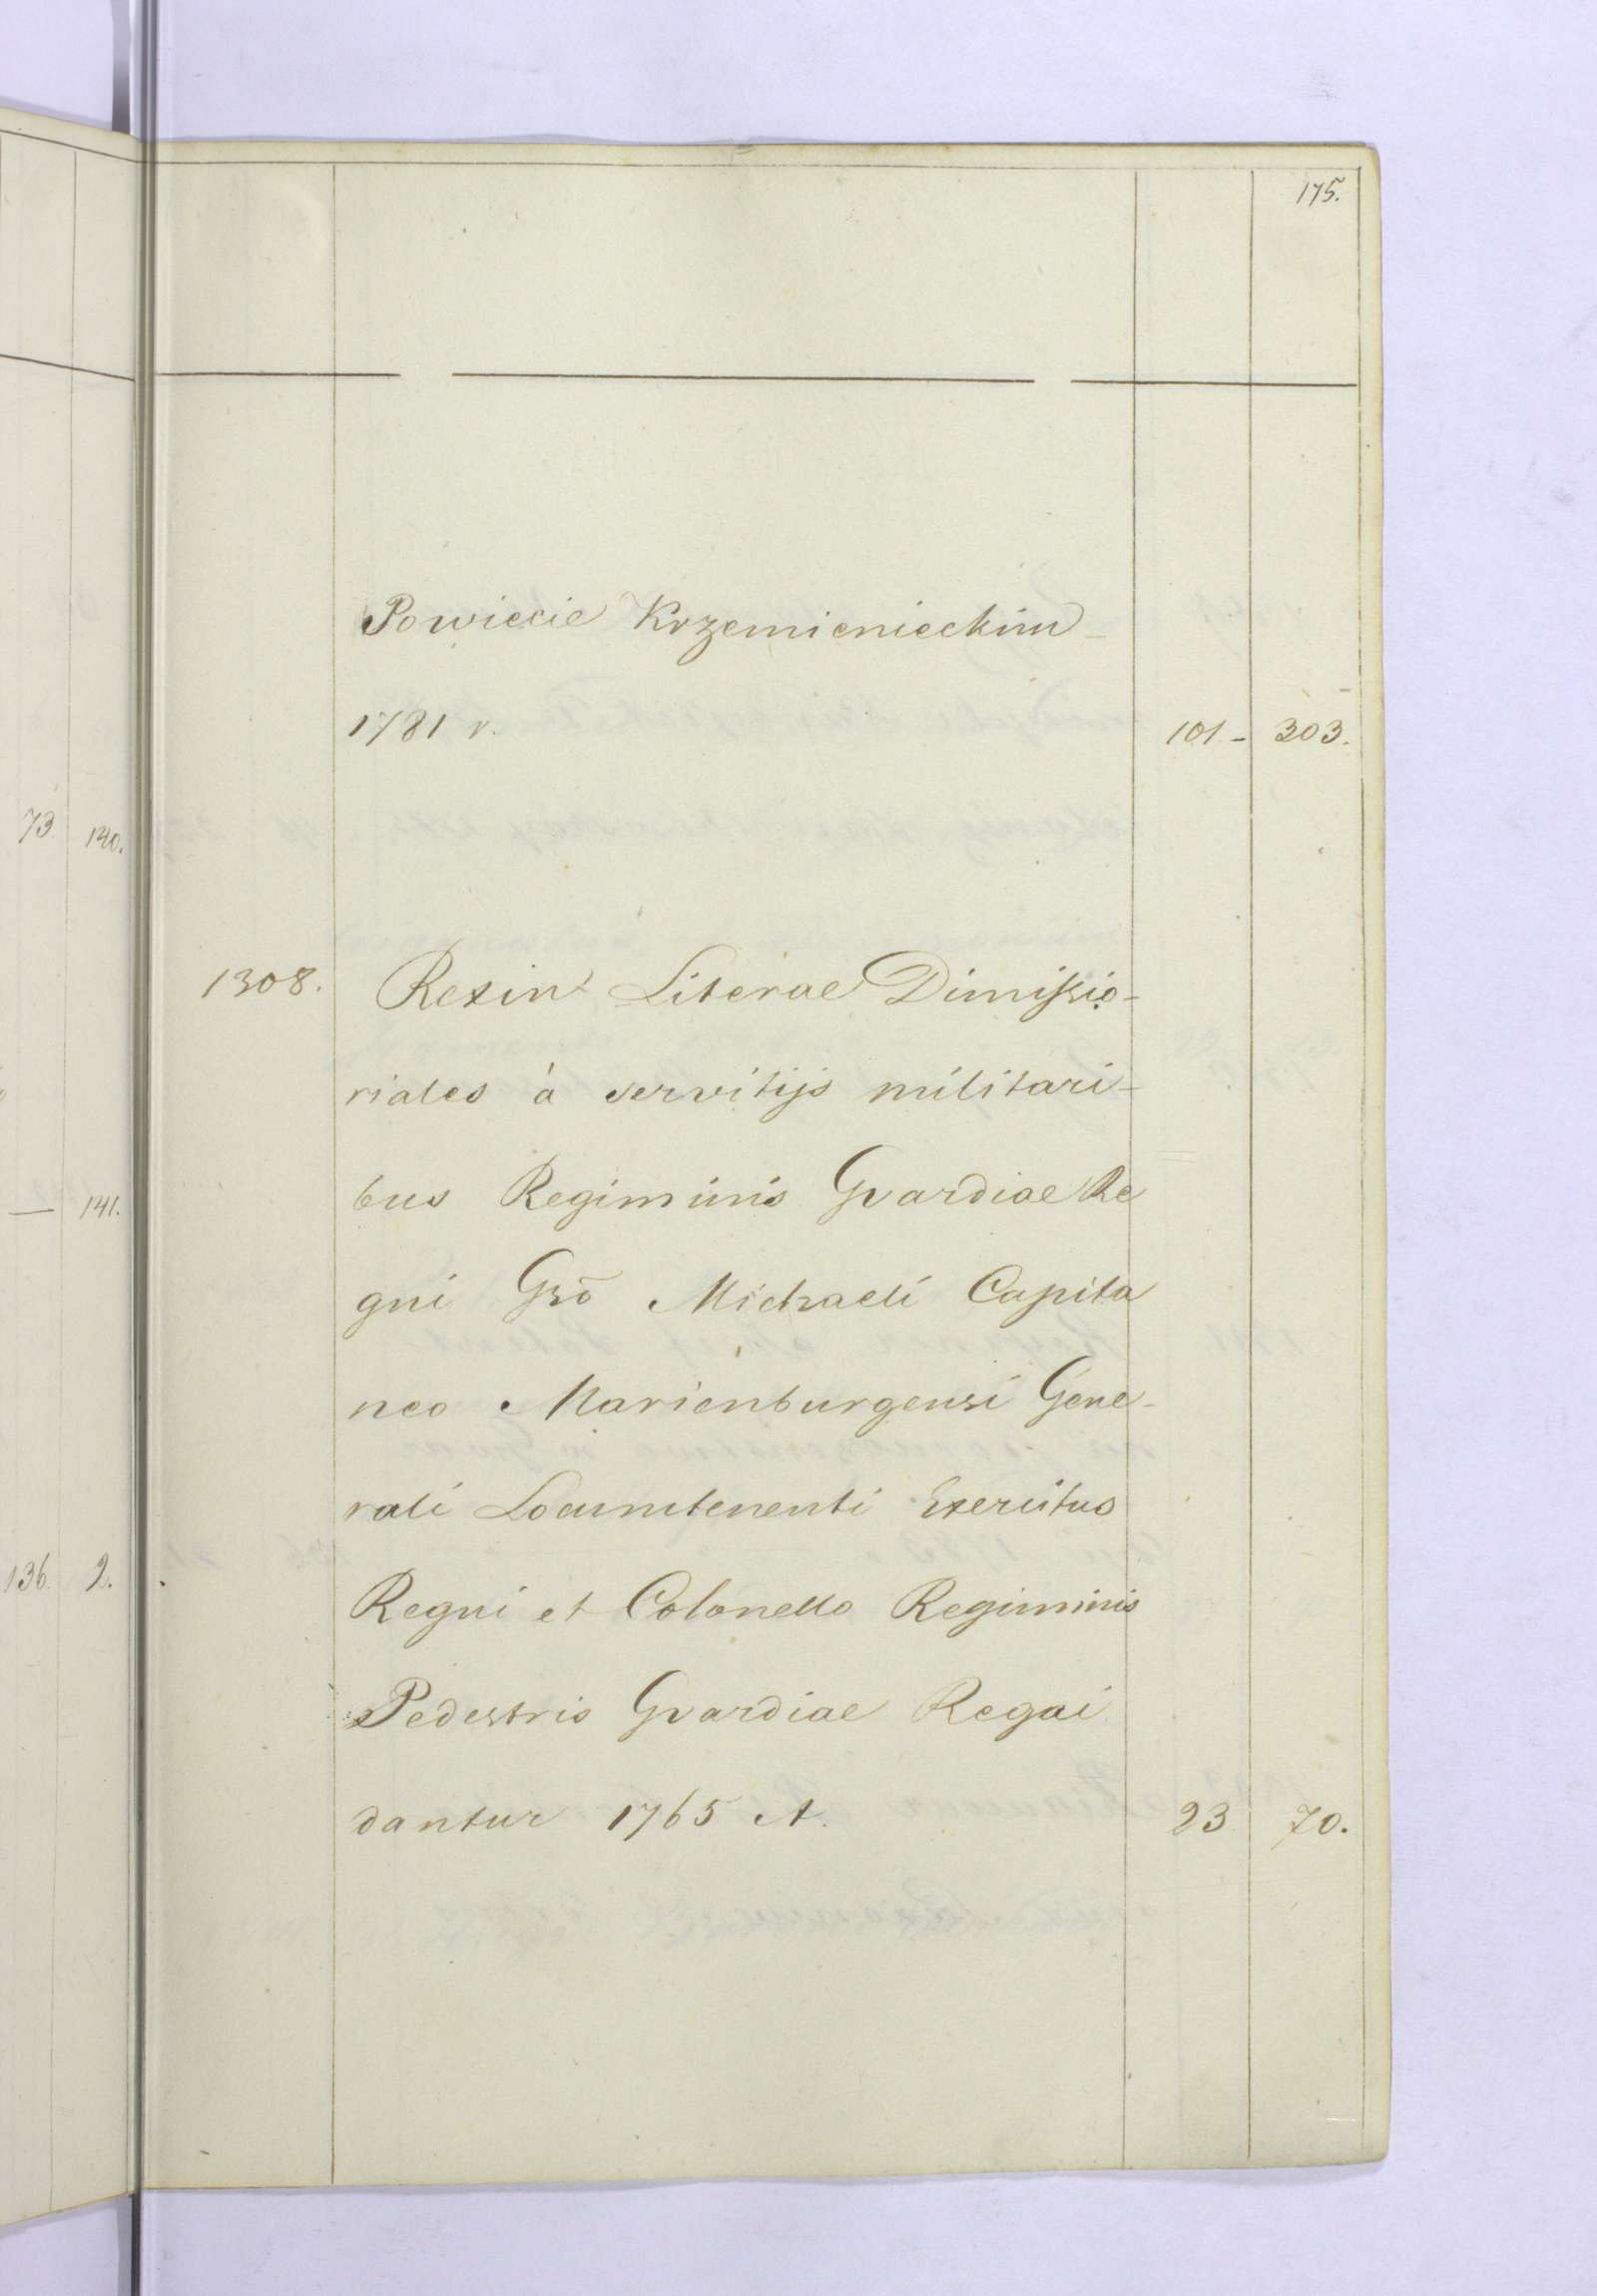 175.
Powiecie Krzemienieckim
1781 r. 101 - 303.
73 140.
1308. Rexin Literae Dimissio-
riales à servitijs militari-
bus Regiminis Gvardiae Re
141.
gni Gso Michaeli Capita
neo Marienburgensi Gene-
rali Locumtenenti Exercitus
136. 2.
Regni et Colonello Regiminis
Pedestris Gvardiae Regni
dantur 1765 A. 23 70.